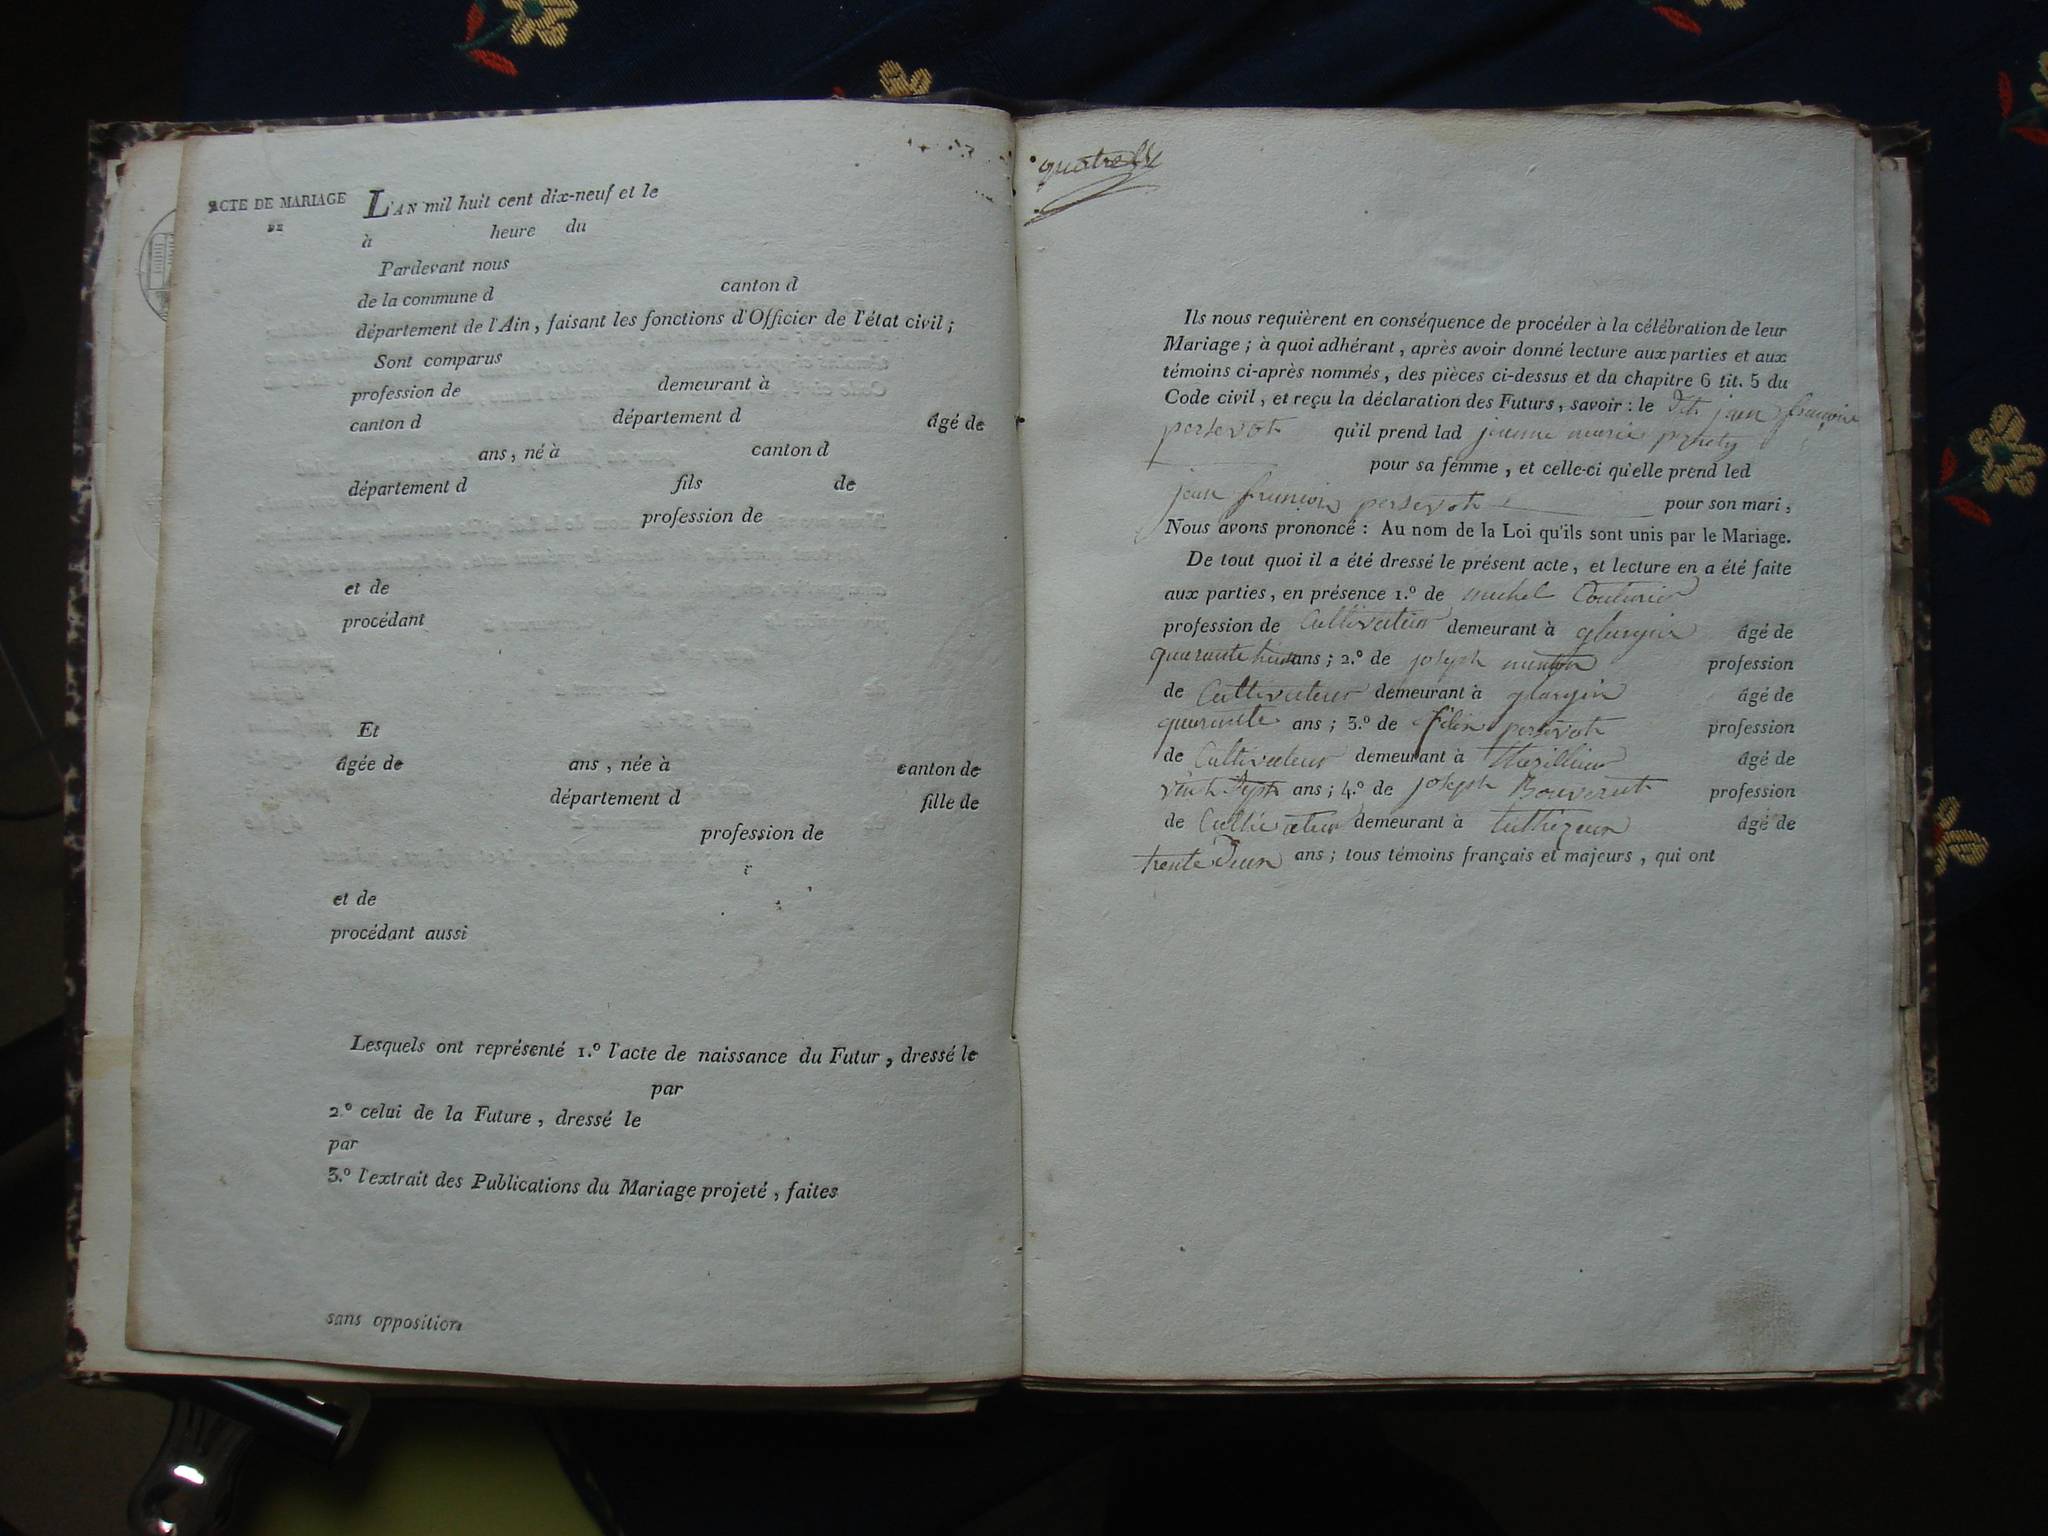 ACTE DE MARIAGE
DE
L'AN mil huit cent dix-neuf et le
à heure du
Pardevant nous
de la commune d canton d
département de l'Ain, faisant les fonctions d'Officier de l'état civil;
Sont comparus
profession de demeurant à
canton d département d âgé de
ans, né à canton d
département d fils de
profession de
et de
procédant
Et
âgée de ans, née à canton de
département d fille de
profession de
et de
procédant aussi
Lesquels ont représenté 1.º l'acte de naissance du Futur, dressé le
par
2.º celui de la Future, dressé le
par
3.º l'extrait des Publications du Mariage projeté, faites
sans opposition
quatre
Ils nous requièrent en conséquence de procéder à la célébration de leur
Mariage; à quoi adhérant, après avoir donné lecture aux parties et aux
témoins ci-après nommés, des pièces ci-dessus et du chapitre 6 tit. 5 du
Code civil, et reçu la déclaration des Futurs, savoir: le dit jean françois
persevot qu'il prend lad jeanne marie
pour sa femme, et celle-ci qu'elle prend led
jean françois persevot pour son mari,
Nous avons prononcé: Au nom de la Loi qu'ils sont unis par le Mariage.
De tout quoi il a été dressé le présent acte, et lecture en a été faite
aux parties, en présence 1.º de michel Couturier
profession de Cultivateur demeurant à âgé de
quarante huit ans; 2.º de joseph profession
de Cultivateur demeurant à âgé de
quarante ans; 3.º de persevot profession
de Cultivateur demeurant à thezillieu âgé de
vint sept ans; 4.º de joseph profession
de Cultivateur demeurant à luthezeux âgé de
trente deux ans; tous témoins français et majeurs, qui ont